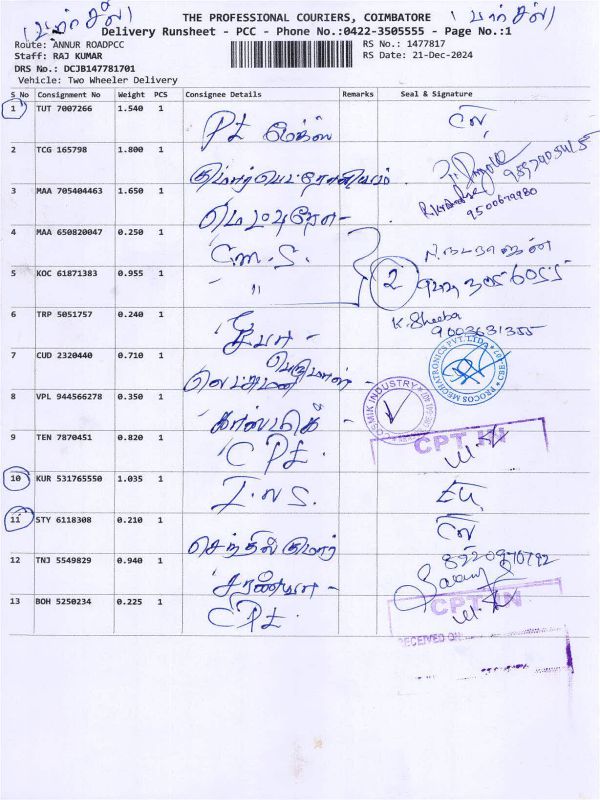 (பார்சல்)
THE PROFESSIONAL COURIERS, COIMBATORE
(பார்சல்)
Delivery Runsheet - PCC - Phone No.:0422-3505555 - Page No.:1
Route: ANNUR ROADPCC
RS No.: 1477817
Staff: RAJ KUMAR
RS Date: 21-Dec-2024
DRS No.: DCJB147781701
Vehicle: Two Wheeler Delivery
S No Consignment No Weight PCS Consignee Details Remarks Seal & Signature
1 TUT 7007266 1.540 1
2 TCG 165798 1.800 1
குமார்
3 MAA 705404463 1.650 1
9500679980
4 MAA 650820047 0.250 1
C.M.S.
5 KOC 61871383 0.955 1
"
2
6 TRP 5051757 0.240 1
ஷீபா -
K. Sheeba
9003631355
7 CUD 2320440 0.710 1
பெருமாள்
லெட்சுமண -
PROCOS MECHATRONICS PVT.LTD.
8 VPL 944566278 0.350 1
காஸ்மிக்
COSMIK INDUSTRY
9 TEN 7870451 0.820 1
CPT
CPT IN
10 KUR 531765550 1.035 1
I.N.S.
11 STY 6118308 0.210 1
செந்தில்குமார்
12 TNJ 5549829 0.940 1
சரண்யா -
13 BOH 5250234 0.225 1
CPT
CPT IN
RECEIVED ON